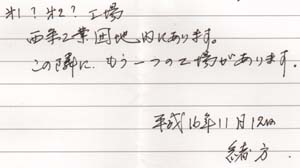 才1？才2？工場
西条工業団地内にあります。
この隣に、もう一つの工場があります。
平成16年11月12日
緒方